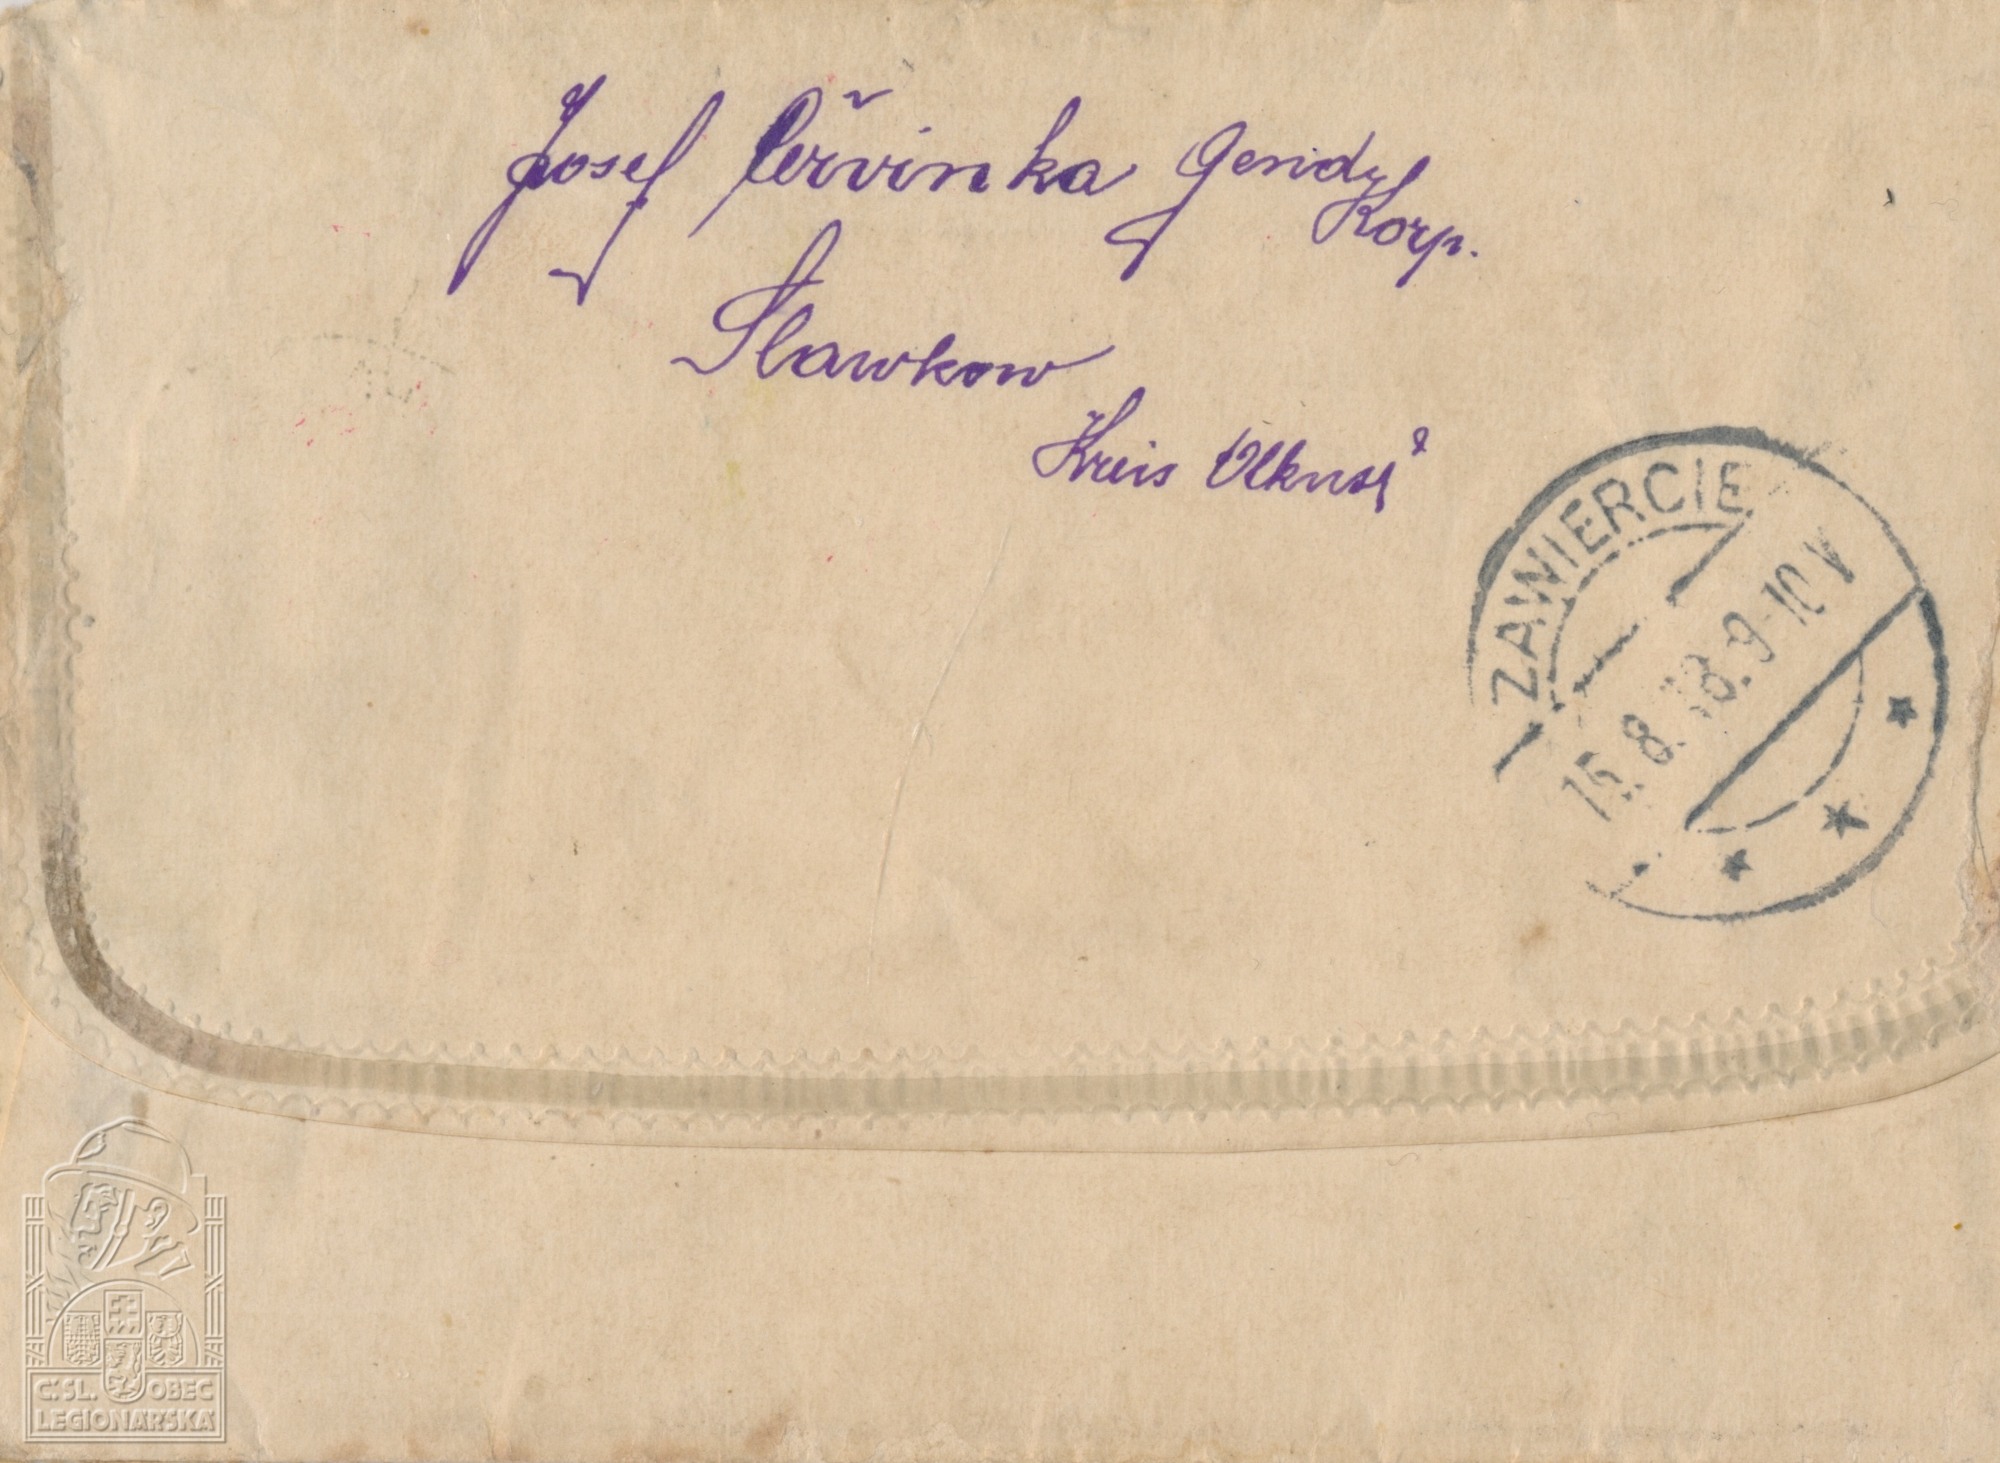 Josef Červinka Gend.
Korp.
Slawkow
Kreis Olkusz
ZAWIERCIE
15.8.18.9-10 V
Č.SL. OBEC
LEGIONÁŘSKÁ